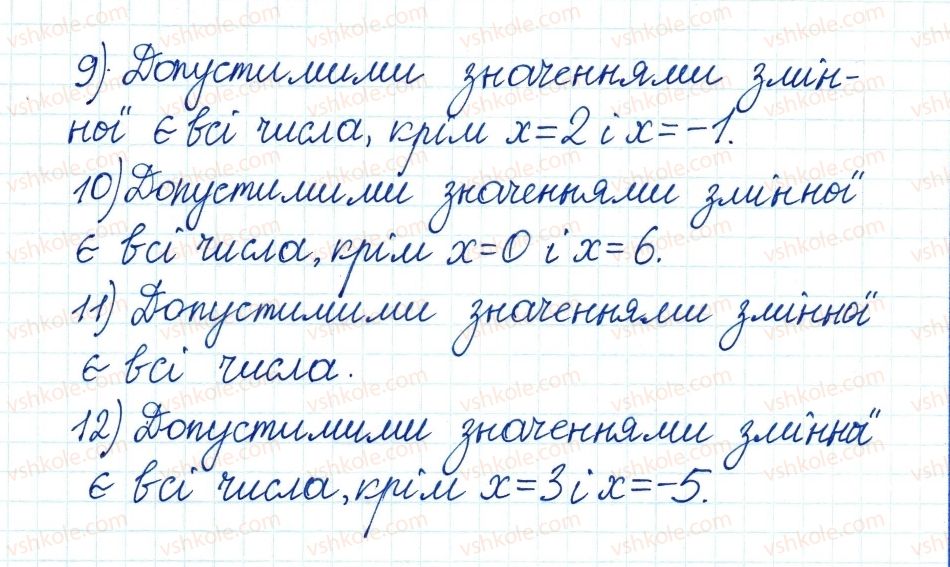 9) Допустимими значеннями змін-
ної є всі числа, крім x=2 і x=-1.
10) Допустимими значеннями змінної
є всі числа, крім x=0 і x=6.
11) Допустимими значеннями змінної
є всі числа.
12) Допустимими значеннями змінної
є всі числа, крім x=3 і x=-5.
vshkole.com